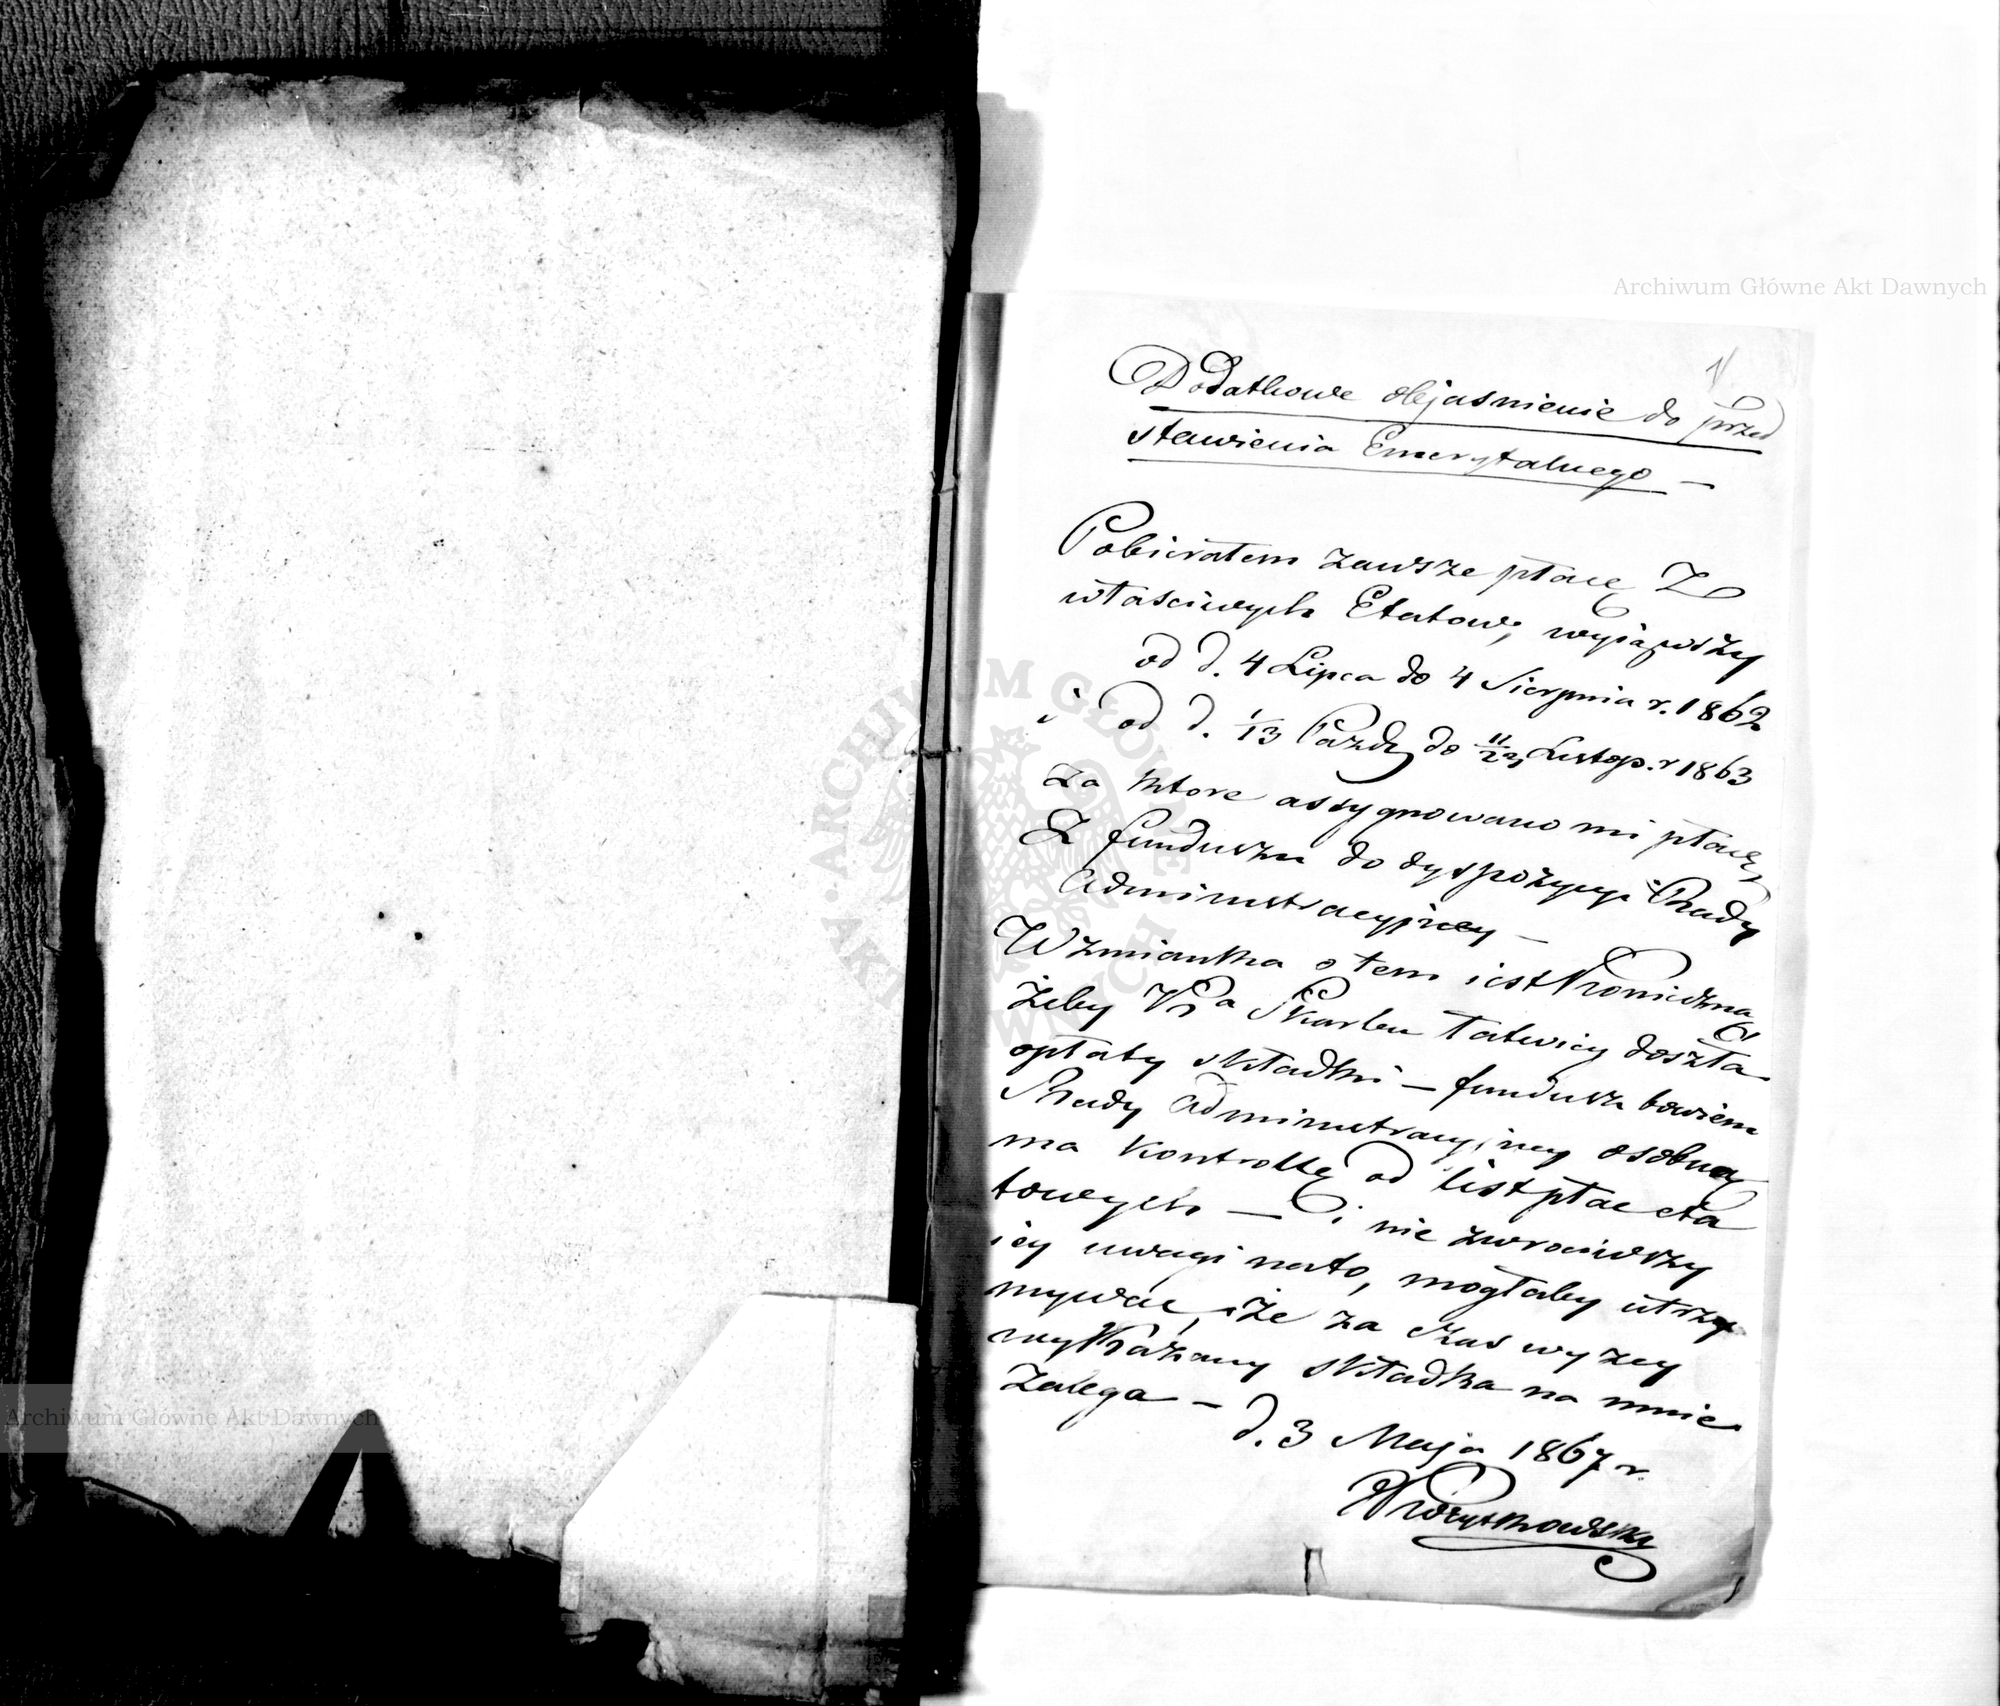 Archiwum Główne Akt Dawnych
1
Dodatkowe objasnienie do przed
stawienia Emerytalnego —
Pobierałem zawsze płacę z
właściwych Etatow, wyiąwszy
od d. 4 Lipca do 4 Sierpnia r. 1862
i od d. 1/13 Paźdz do 11/23 Listop. r 1863
za ktore assygnowano mi płacę
z funduszu do dyspozycyi Rady
Administracyjney —
Wzmianka o tem iest konieczna
żeby Kssa Skarbu łatwiey doszła
opłaty składki — fundusz bowiem
Rady Administracyjney osobną
ma kontrollę od list płac eta
towych — i nie zwrociwszy
iey uwagi na to, mogłaby utrzy
mywać, że za czas wyżey
wykazany składka na mnie
zalega — d. 3 Maja 1867 r.
Archiwum Główne Akt Dawnych
ARCHIWUM GŁÓWNE AKT DAWNYCH